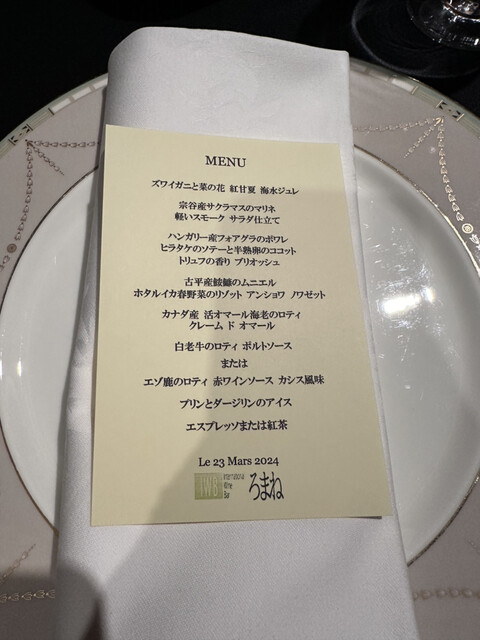 MENU
ズワイガニと菜の花 紅甘夏 海水ジュレ
宗谷産サクラマスのマリネ
軽いスモーク サラダ仕立て
ハンガリー産フォアグラのポワレ
ヒラタケのソテーと半熟卵のココット
トリュフの香り ブリオッシュ
古平産鮟鱇のムニエル
ホタルイカ春野菜のリゾット アンショワ ノワゼット
カナダ産 活オマール海老のロティ
クレーム ド オマール
白老牛のロティ ポルトソース
または
エゾ鹿のロティ 赤ワインソース カシス風味
プリンとダージリンのアイス
エスプレッソまたは紅茶
Le 23 Mars 2024
IWB International Wine Bar ろまね